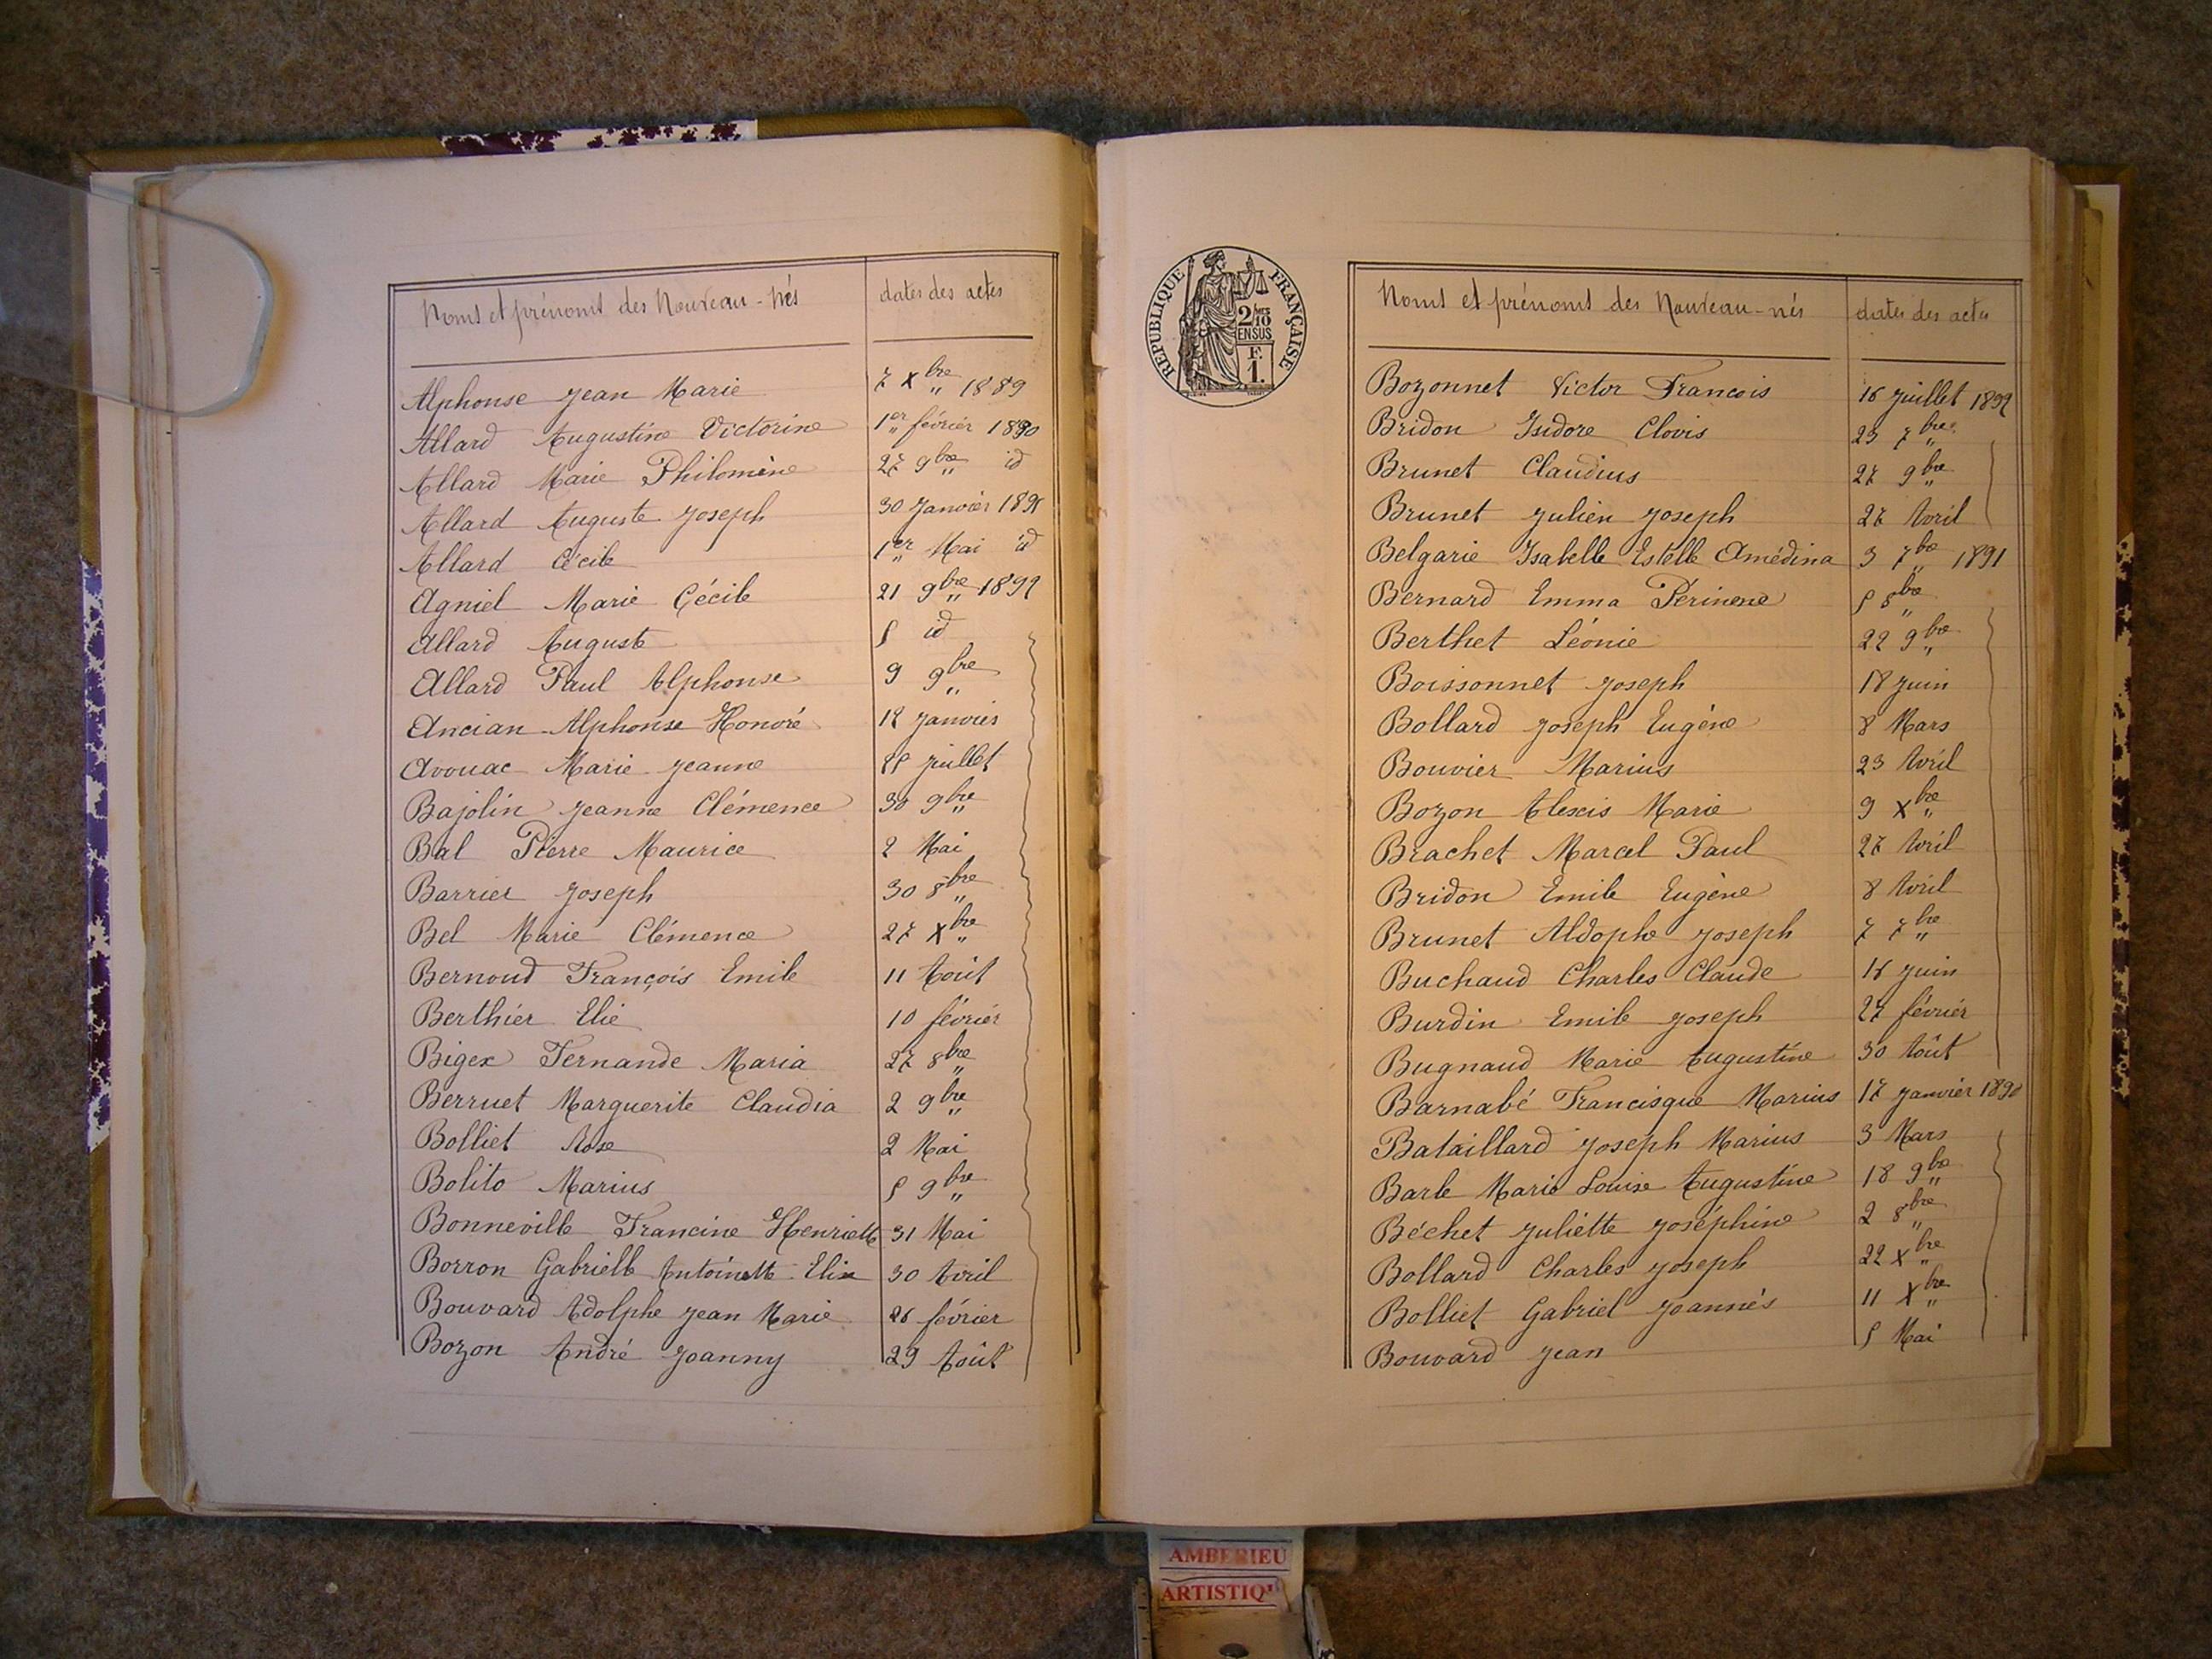 Noms et prénoms des Nouveau-nés dates des actes
Alphonse Jean Marie 7 Xbre 1889
Allard Augustine Victorine 1er février 1890
Allard Marie Philomène 27 9bre id
Allard Auguste Joseph 30 Janvier
Allard Cécile 1er Mai id
Agniel Marie Cécile 21 9bre 1892
Allard Auguste 5 id
Allard Paul Alphonse 9 9bre
Ancian Alphonse Honoré 12 Janvier
Avouac Marie Jeanne Juillet
Bajolin Jeanne Clémence 30 9bre
Bal Pierre Maurice 2 Mai
Barrier Joseph 30 8bre
Bel Marie Clémence 27 Xbre
Bernoud François Emile 11 Août
Berthier Elie 10 février
Bigex Fernande Maria 27 8bre
Berruet Marguerite Claudia 2 9bre
Bolliet Rose 2 Mai
Bolito Marius 5 9bre
Bonneville Francine Henriette 31 Mai
Borron Gabrielle Antoinette 30 Avril
Bouvard Adolphe Jean Marie 26 février
Bozon André Joanny 29 Août
REPUBLIQUE FRANÇAISE
2/10
EN SUS
F.
1.
Noms et prénoms des Nouveau-nés dates des actes
Bozonnet Victor Francois 16 Juillet 1892
Bridon Isidore Clovis 23 7bre
Brunet Claudius 27 9bre
Brunet Julien Joseph 27 Avril
Belgarie Isabelle Estelle Amédina 3 7bre 1891
Bernard Emma Périnene 5 8bre
Berthet Léonie 22 9bre
Boissonnet Joseph 18 Juin
Bollard Joseph Eugène 8 Mars
Bouvier Marius 23 Avril
Bozon Alexis Marie 9 Xbre
Brachet Marcel Paul 27 Avril
Bridon Emile Eugène 8 Avril
Brunet Aldophe Joseph 7 7bre
Buchaud Charles Claude 16 Juin
Burdin Emile Joseph 27 février
Bugnaud Marie Augustine 30 Août
Barnabé Francisque Marius 17 Janvier 1890
Bataillard Joseph Marius 3 Mars
Barle Marie Louise Augustine 18 9bre
Béchet Juliette Joséphine 2 8bre
Bollard Charles Joseph 22 Xbre
Bolliet Gabriel Joannès 11 Xbre
Bouvard Jean 5 Mai
AMBERIEU
ARTISTIQ